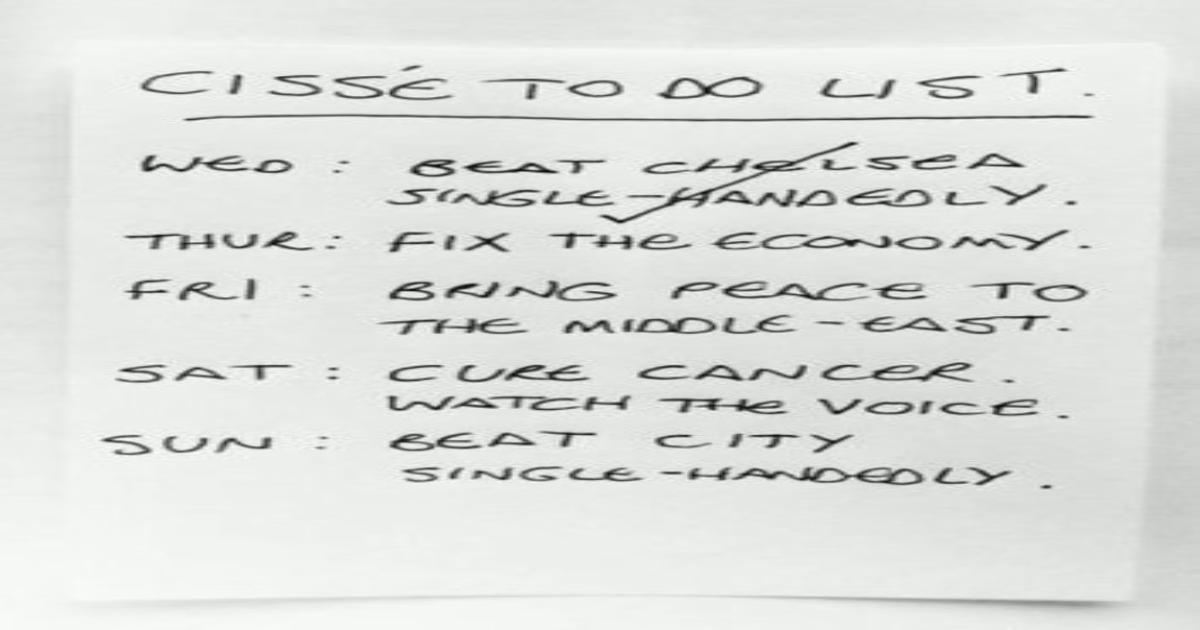 CISSÉ TO DO LIST.
WED : BEAT CHELSEA
SINGLE-HANDEDLY.
THUR: FIX THE ECONOMY.
FRI : BRING PEACE TO
THE MIDDLE-EAST.
SAT : CURE CANCER.
WATCH THE VOICE.
SUN : BEAT CITY
SINGLE-HANDEDLY.